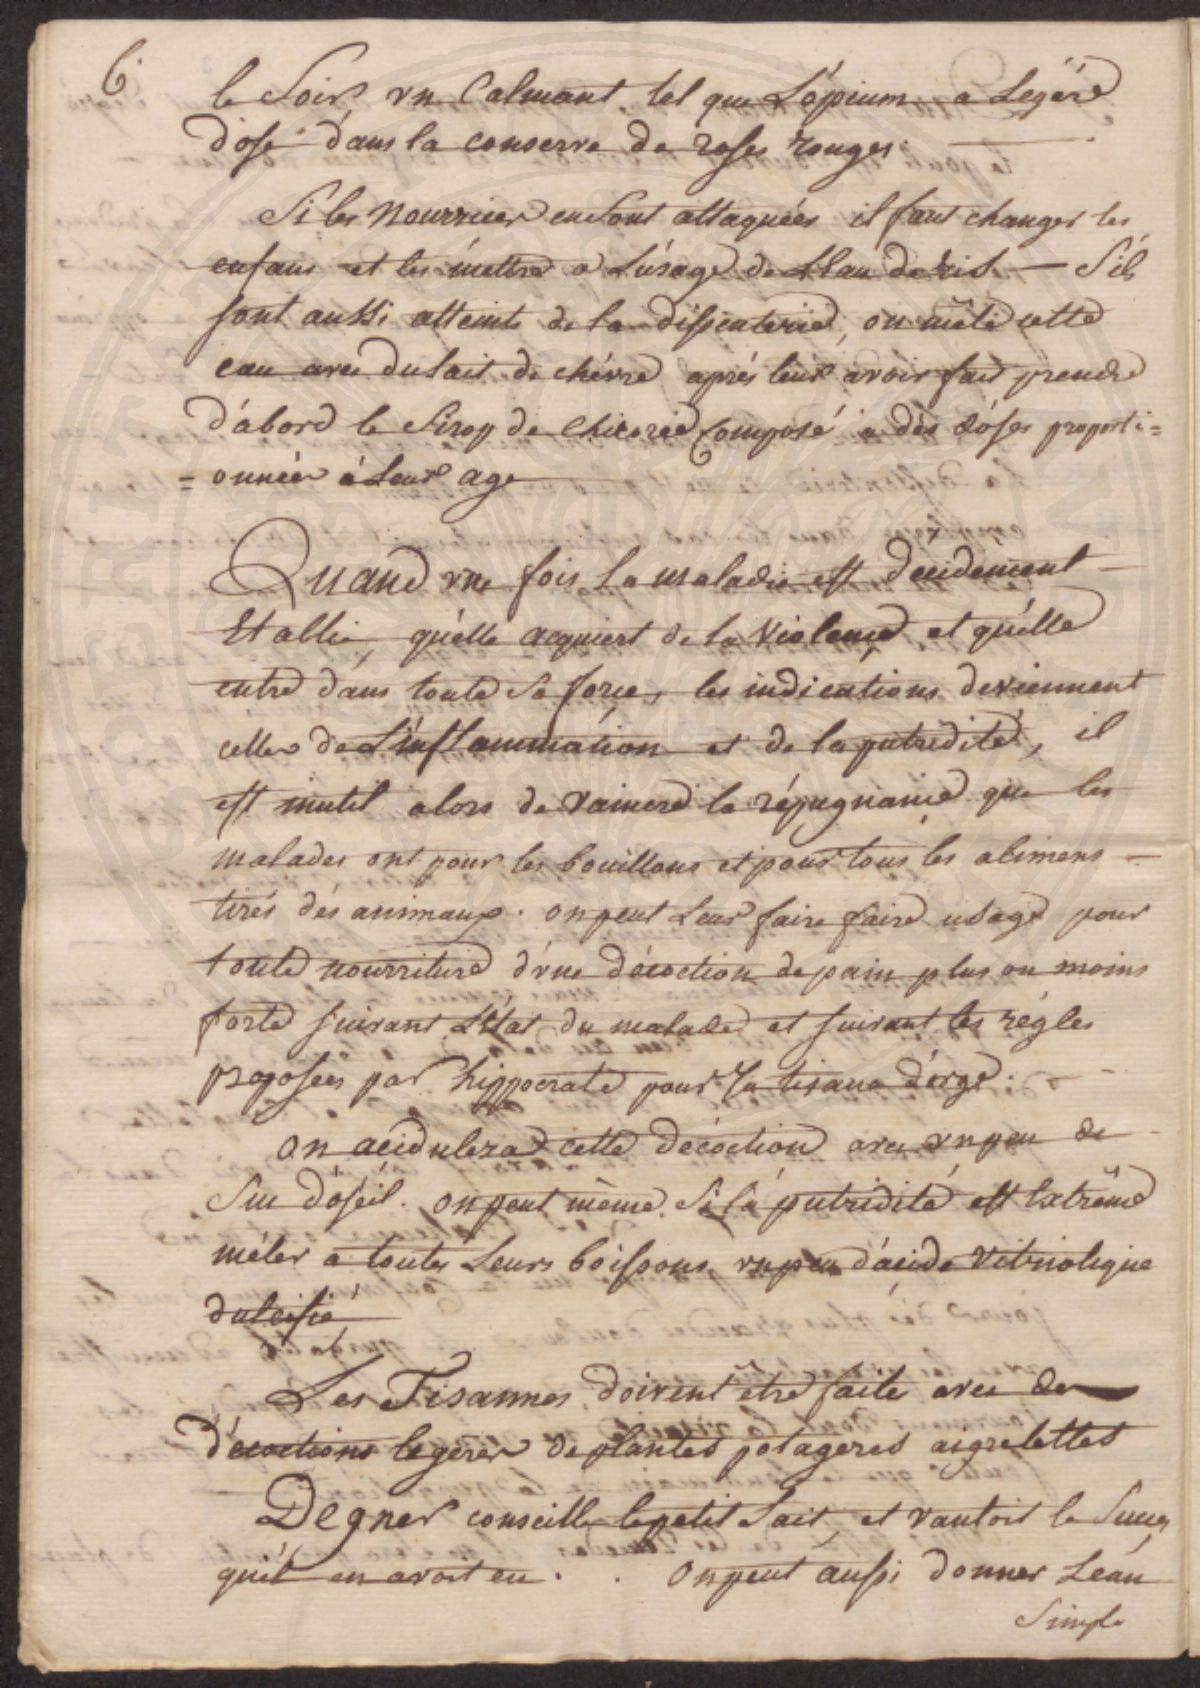 6.
le Soir vn Calmant tel que L'ópium a Legére
dose dans la conserve de roses rouges.
Si les Nourrices en sont attaquées il faut changer les
enfans et les méttre a L'usage de L'Eau de ris — S'ils
sont aussi atteints de la dissenterie, on mêle cette
eau avec du Lait de chévre aprés leur avoir fait prendre
d'abord le Sirop de Chicorée Composé a dés dóses proporti=
=onnées à Leur age
Quand vne fois la maladie est décidement
Etablie, qu'elle acquiert de la Violence et qu'elle
entre dans toute Sa force, les indications deviennent
celles de L'inflammation et de la putridité, il
est inutil alors de vaincre la répugnance que les
malades ont pour les bouillons et pour tous les alimens
tirés dés animaux. on peut Leur faire faire usage pour
toute nourriture d'vne décoction de pain plus ou moins
forte suivant L'état du malade et suivant les régles
proposées par hippocrate pour Sa tisane d'orge.
On acidulera cette décoction avec vn peu de
Suc d'óseil. on peut même. Si la putridité est Extrême
méler a toutes Leurs boissons vn peu d'acide Vitriolique
dulcifié
Les Tisannes doivent être faite avec des
décoctions legéres de plantes potageres aigrelettes
Degner conseille le petit Lait, et vantoit le Succes
qu'il en avoit eu. . On peut aussi donner L'eau
Simple